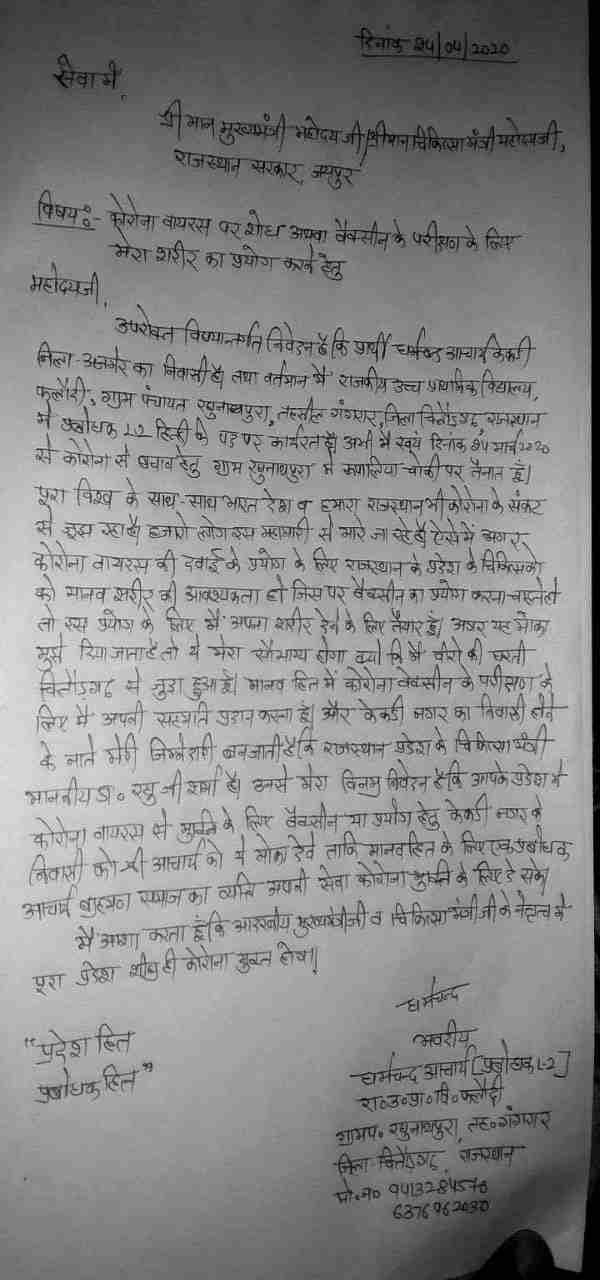 दिनांक 24/04/2020
सेवा में,
श्री मान मुख्यमंत्री महोदय जी/श्रीमान चिकित्सा मंत्री महोदयजी,
राजस्थान सरकार, जयपुर
विषयः- कोरोना वायरस पर शोध अथवा वैक्सीन के परीक्षण के लिए
मेरा शरीर का प्रयोग करने हेतु
महोदयजी,
उपरोक्त विषयान्तर्गत निवेदन है कि प्रार्थी धर्मचन्द आचार्य केकडी
जिला-अजमेर का निवासी है। तथा वर्तमान में राजकीय उच्च प्राथमिक विद्यालय,
ग्राम पंचायत रघुनाथपुरा, तहसील गंगरार, जिला चितौडगढ़ राजस्थान
में प्रबोधक L-2 हिन्दी के पद पर कार्यरत है। अभी मैं स्वयं दिनांक मार्च 2020
से कोरोना से बचाव हेतु ग्राम रघुनाथपुरा में चौकी पर तैनात हूं।
पूरा विश्व के साथ-साथ भारत देश व हमारा राजस्थान भी कोरोना के संकट
से जूझ रहा है। हजारो लोग इस महामारी से मारे जा रहे है। ऐसे में अगर
कोरोना वायरस की दवाई के प्रयोग के लिए राजस्थान के प्रदेश के चिकित्सको
को मानव शरीर की आवश्यकता हो जिस पर वैक्सीन का प्रयोग करना चाहते हो
तो इस प्रयोग के लिए मैं अपना शरीर देने के लिए तैयार हूं। अगर यह मौका
मुझे दिया जाता है तो ये मेरा सौभाग्य होगा क्यो कि मैं वीरो की धरती
चितौडगढ़ से जुडा हुआ हूं। मानव हित में कोरोना वेक्सीन के परीक्षण के
लिए मैं अपनी सहमति प्रदान करता हूं। और केकडी नगर का निवासी होने
के नाते मेरी जिम्मेदारी बन जाती है कि राजस्थान प्रदेश के चिकित्सा मंत्री
माननीय डा॰ रघु जी शर्मा है। उनसे मेरा विनम्र निवेदन है कि आपके प्रदेश में
कोरोना वायरस से मुक्ति के लिए वैक्सीन या प्रयोग हेतु केकडी नगर के
निवासी को श्री आचार्य को ये मौका देवे ताकि मानव हित के लिए एक प्रबोधक
आचार्य ब्राह्मण समाज का व्यक्ति अपनी सेवा कोरोना मुक्ति के लिए दे सके।
मैं आशा करता हूं कि आदरणीय मुख्यमंत्रीजी व चिकित्सा मंत्री जी के नेतृत्व में
पूरा प्रदेश शीघ्र ही कोरोना मुक्त होगा।
धर्मचन्द
"प्रदेश हित
प्रबोधक हित"
भवदीय
धर्मचन्द आचार्य [प्रबोधक L-2]
रा॰उ॰प्रा॰वि॰
ग्रा॰प॰ रघुनाथपुरा, तह॰ गंगरार
जिला-चितौडगढ़, राजस्थान
मो॰न॰ 9413284570
6376962030